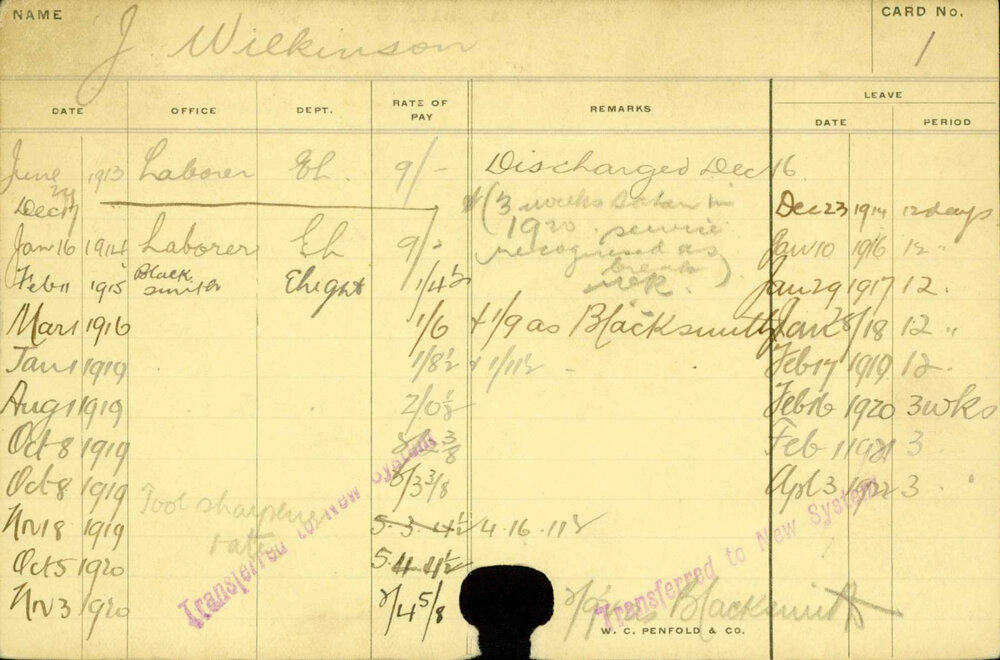 NAME J Wilkinson CARD No. 1
DATE OFFICE DEPT. RATE OF PAY REMARKS LEAVE
DATE PERIOD
June 24 1913 Laborer Eh. 9/- Discharged Dec 16
Dec 17 (3 weeks taken in Dec 23 1914 12 days
1920 service
Jan 16 1914 Laborer Eh 9/- recognised as Jan 10 1916 12 "
break
Feb 11 1915 Black smith Ehight 1/4½ ) Jan 29 1917 12.
Mar 1 1916 1/6 + 1/9 as Blacksmith Jan 28/18 12 "
Jan 1 1919 1/8½ + 1/11½ - Feb 17 1919 12.
Aug 1 1919 2/0⅛ Feb 16 1920 3 wks
Oct 8 1919 Feb 1 1921 3
Oct 8 1919 2/3⅜ Apl 3 1922 3 "
Tool sharpening
Nov 18 1919 rate 5.3.4½ 4.16.11½
Oct 5 1920 5.4.4½
Nov 3 1920 2/4⅝ Blacksmith
Transferred to New System
Transferred to New System
W. C. PENFOLD & CO.